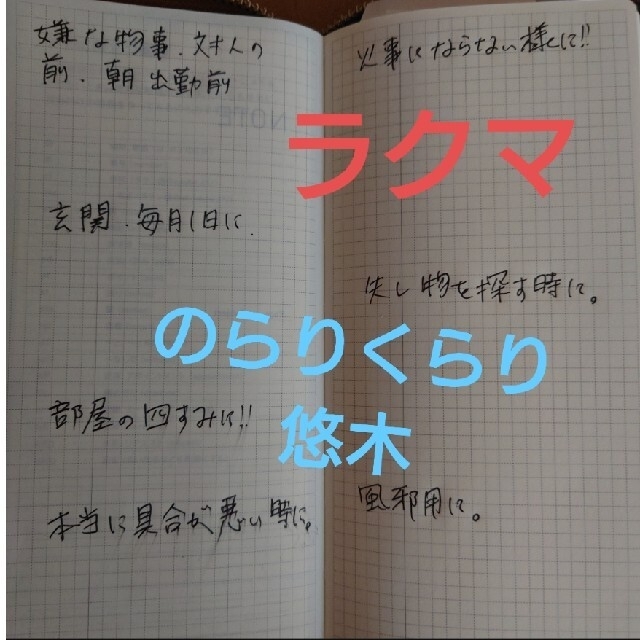 嫌な物事、対人の
前、朝出勤前
玄関、毎月1日に、
部屋の四すみに!!
本当に具合が悪い時に。
火事にならない様に!!
失し物を探す時に。
風邪用に。
ラクマ
のらりくらり
悠木